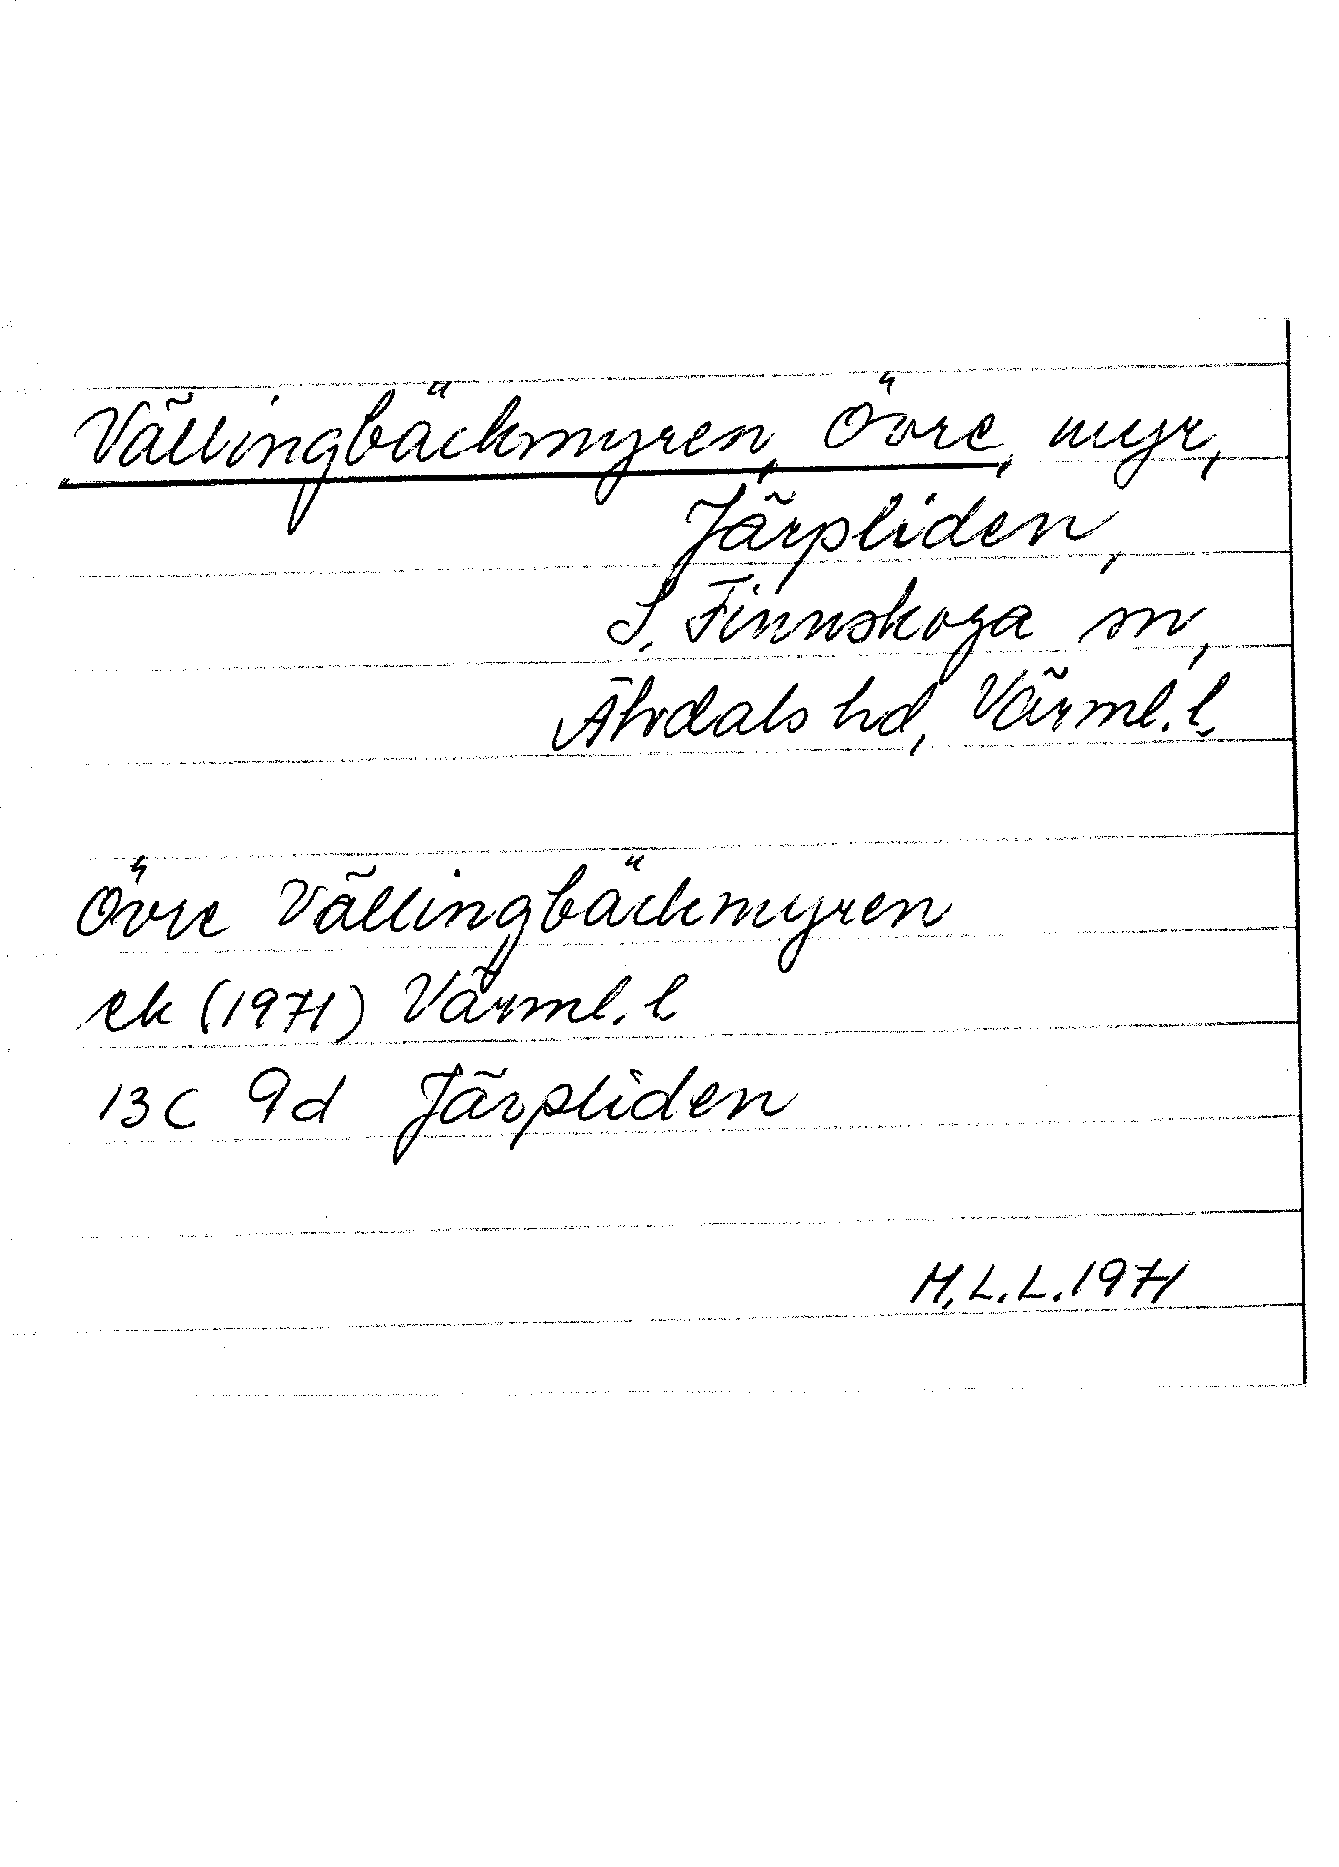 Vällingbäckmyren, Övre, myr,
Järpliden,
S. Finnskoga sn,
Älvdals hd, Värml. l.
Övre Vällingbäckmyren
ek (1971) Värml. l
13C 9d Järpliden
M.L.L. 1971